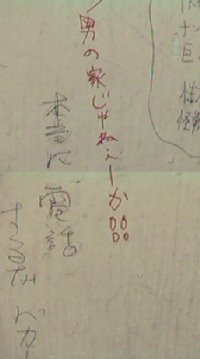 男の家じゃねぇーか!!
本当に
電話
するな バカー